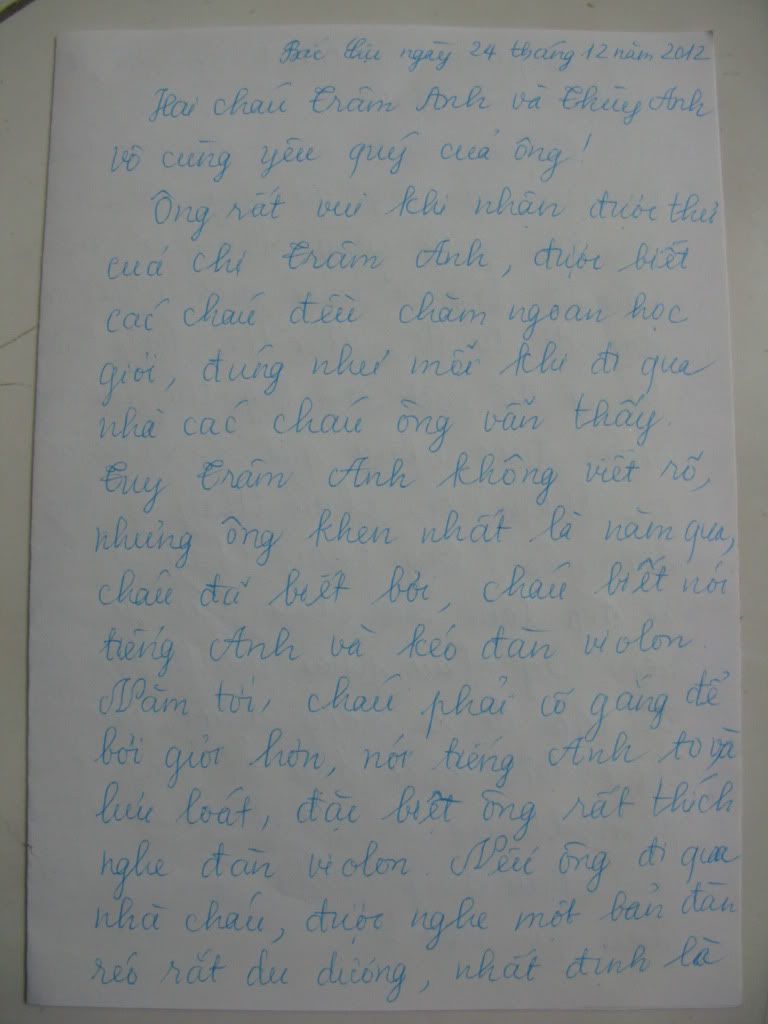 Bắc cực ngày 24 tháng 12 năm 2012
Hai cháu Trâm Anh và Thùy Anh
vô cùng yêu quý của ông!
Ông rất vui khi nhận được thư
của chị Trâm Anh, được biết
các cháu đều chăm ngoan học
giỏi, đúng như mỗi khi đi qua
nhà các cháu ông vẫn thấy.
Tuy Trâm Anh không viết rõ,
nhưng ông khen nhất là năm qua,
cháu đã biết bơi, cháu biết nói
tiếng Anh và kéo đàn violon.
Năm tới, cháu phải cố gắng để
bơi giỏi hơn, nói tiếng Anh to và
lưu loát, đặc biệt ông rất thích
nghe đàn violon. Nếu ông đi qua
nhà cháu, được nghe một bản đàn
réo rắt du dương, nhất định là